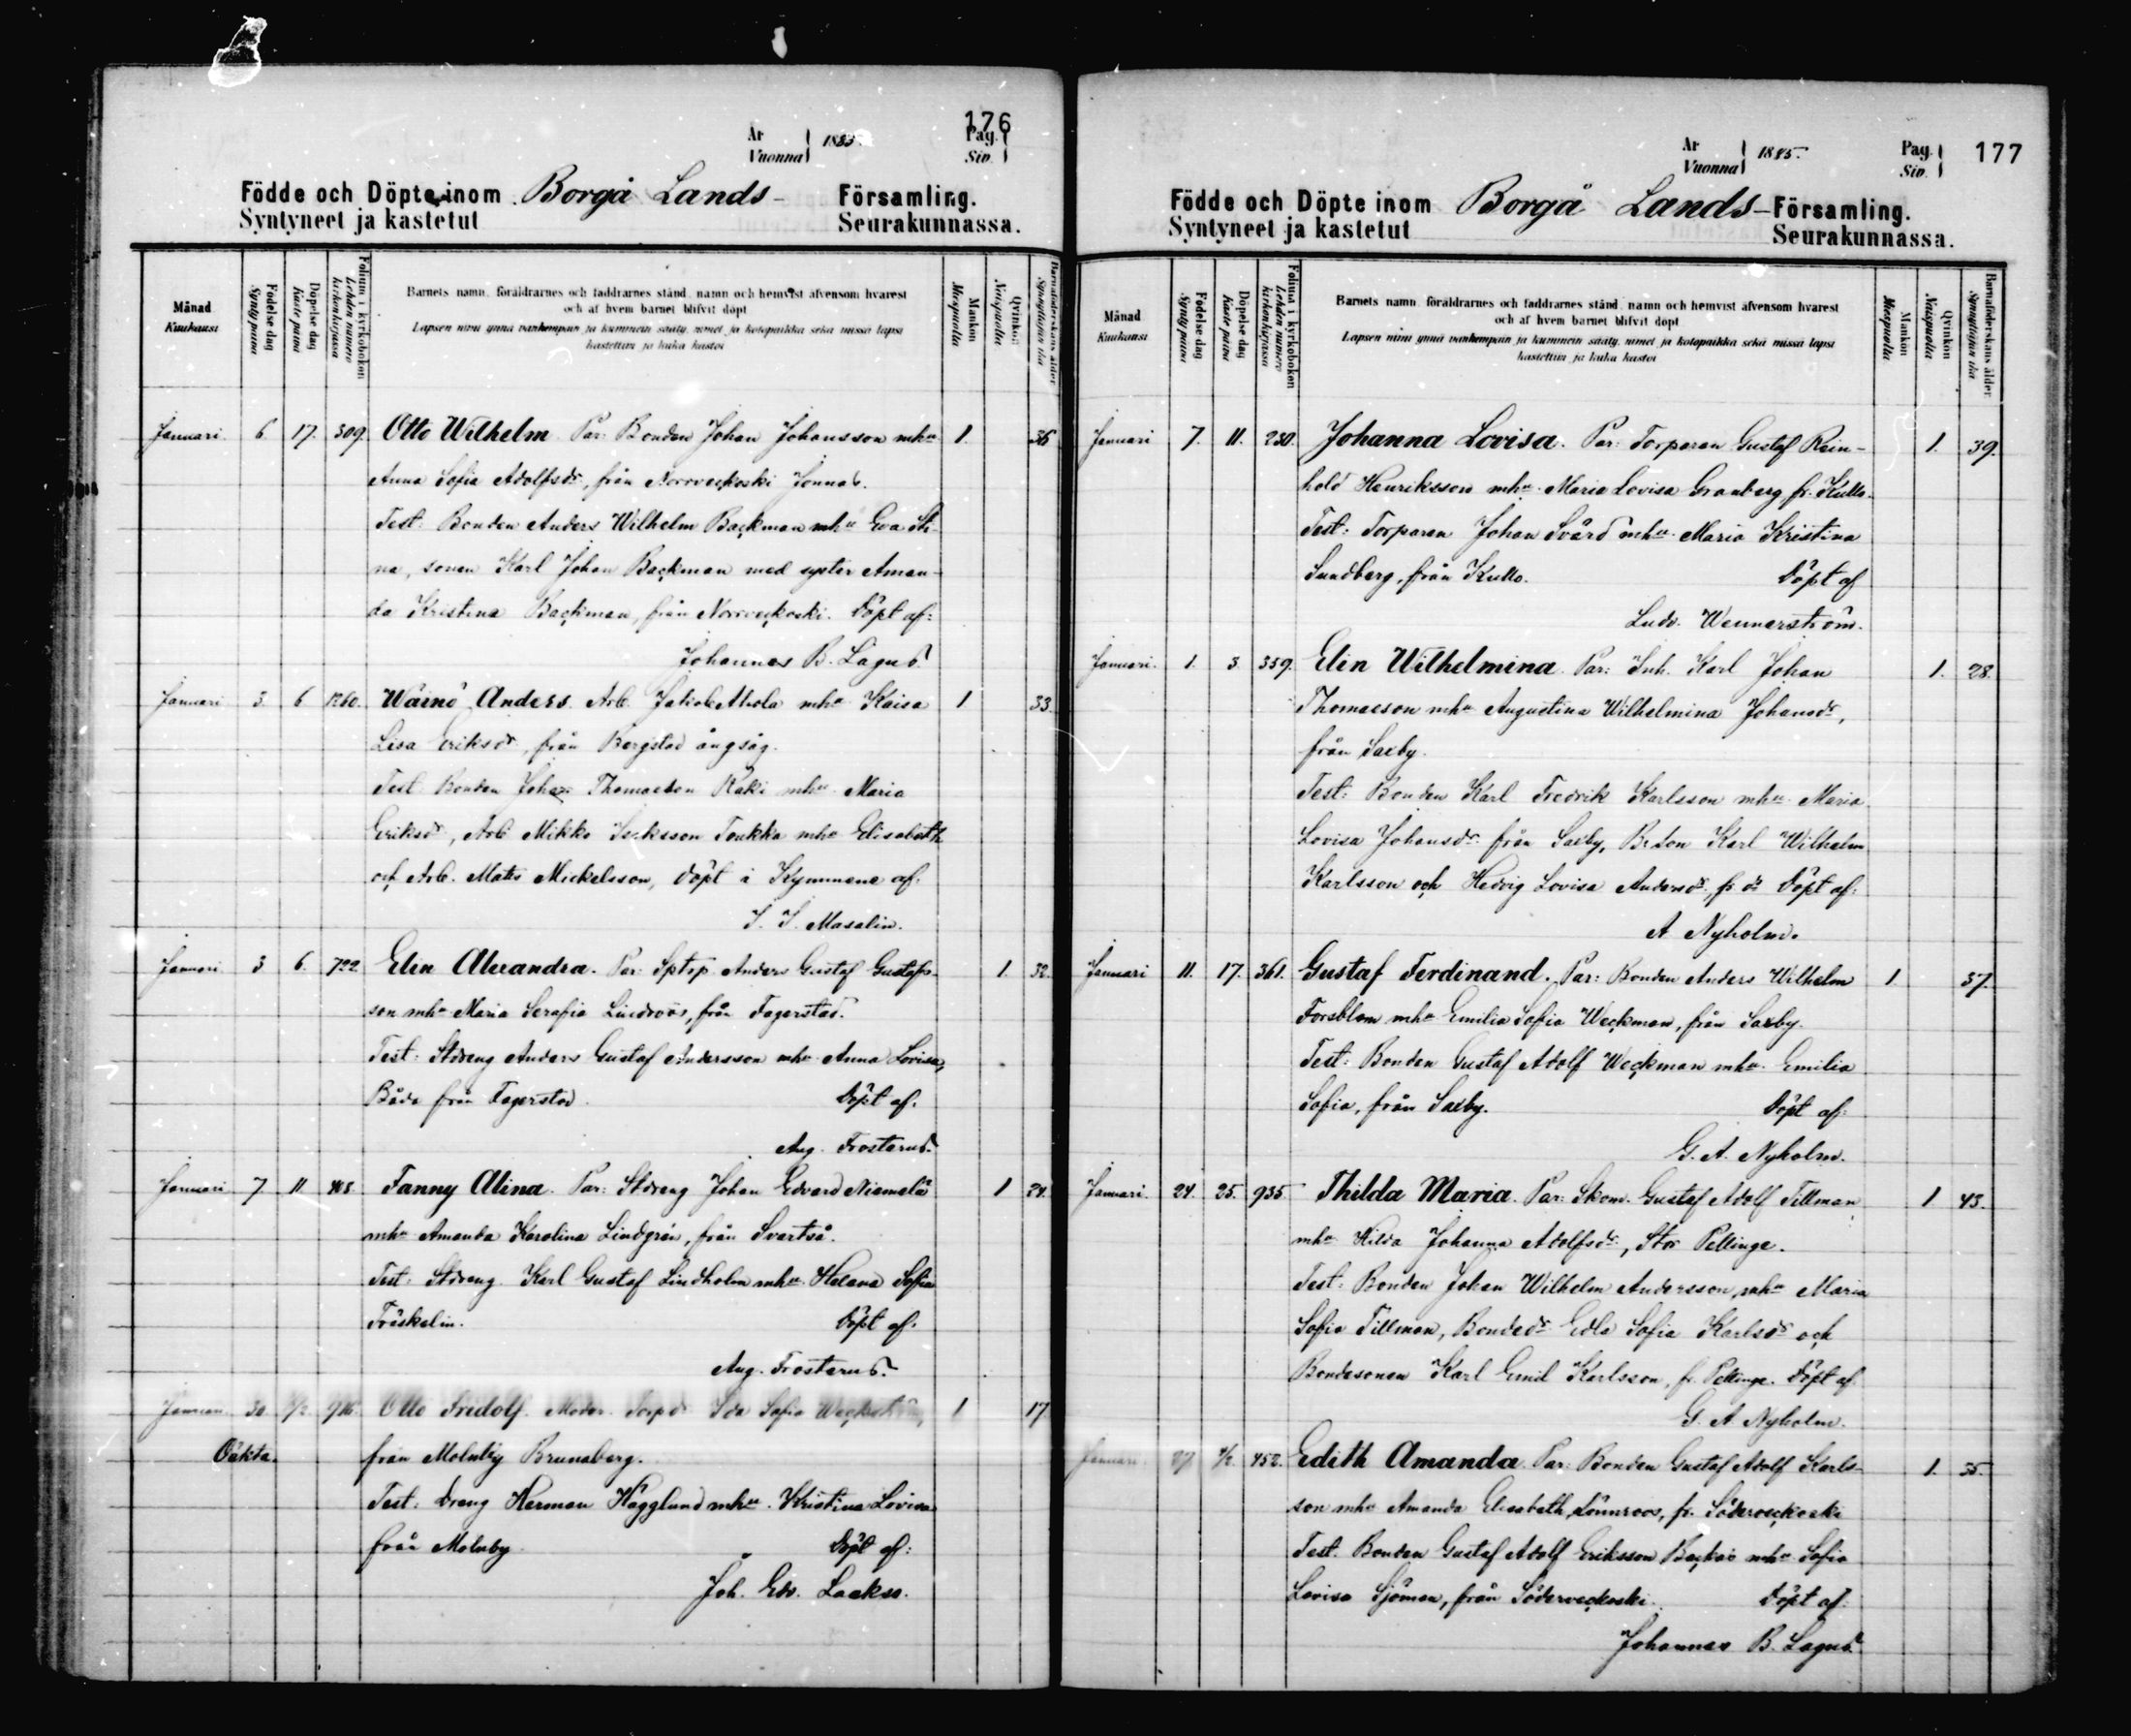 176
År
Vuonna
1885.
Pag.
Siv.
Födde och Döpte inom Borgå Lands- Församling.
Syntyneet ja kastetut Seurakunnassa.
Månad
Kuukausi
Födelse dag
Syntypäivä
Döpelse dag
Kaste päivä
Folium i kyrkoboken
Lehden numero kirkonkirjassa
Barnets namn, föräldrarnes och faddrarnes stånd, namn och hemvist äfvensom hvarest
och af hvem barnet blifvit döpt
Lapsen nimi ynnä vanhempain ja kummein sääty, nimet ja kotopaikka sekä missä lapsi
kastettiin ja kuka kastoi
Mankön
Miespuolia
Qvinkön
Naispuolia
Barnaföderskans ålder
Synnyttäjän ikä
Januari 6. 17. 309. Otto Wilhelm. Par: Bonden Johan Johansson mhu 1. 36
Anna Sofia Adolfsdr, från Norrveckoski Jonnas.
Test: Bonden Anders Wilhelm Backman mhu Eva Sti-
na, sonen Karl Johan Backman med syster Aman-
da Kristina Backman, från Norrveckoski. Döpt af:
Johannes B. Lagus.
Januari 3. 6 1260. Wäinö Anders. Arb. Jakob Ahola mhu Kaisa 1 33.
Lisa Eriksdr, från Bergstad ångsåg.
Test. Bonden Johan Thomasson Raki mhu Maria
Eriksdr, Arb. Mikko Toukka mhu Elisabeth
och Arb. Mats Mickelsson, döpt i Kymmene af.
Masalin.
Januari 3 6. 722 Elin Alexandra. Par: Sptsp. Anders Gustaf Gustafs- 1. 32.
son mhu Maria Serafia Lindroos, från Fagerstad.
Test: Stdreng Anders Gustaf Andersson mhu Anna Lovisa,
Båda från Fagerstad. Döpt af.
Aug. Frosterus.
Januari 7 11 Fanny Alina. Par: Stdreng Johan Edvard Niemelä 1 24.
mhu Amanda Karolina Lindgrén, från Svartså.
Test: Stdreng Karl Gustaf Lindholm mhu Helena Sofia
Fröskelin. Döpt af.
Aug. Frosterus.
Januari 30. Otto Fridolf. Moder. Torpdr Ida Sofia 1 17
Oäkta. från Molnby Brunaberg.
Test: Dreng Herman Hägglund mhu Kristina Lovisa
från Molnby. Döpt af:
Joh. Edv. Laakso.
År
Vuonna
1885.
Pag.
Siv.
177
Födde och Döpte inom Borgå Lands- Församling.
Syntyneet ja kastetut Seurakunnassa.
Månad
Kuukausi
Födelse dag
Syntypäivä
Döpelse dag
Kaste päivä
Folium i kyrkoboken
Lehden numero kirkonkirjassa
Barnets namn, föräldrarnes och faddrarnes stånd, namn och hemvist äfvensom hvarest
och af hvem barnet blifvit döpt
Lapsen nimi ynnä vanhempain ja kummein sääty, nimet ja kotopaikka sekä missä lapsi
kastettiin ja kuka kastoi
Mankön
Miespuolia
Qvinkön
Naispuolia
Barnaföderskans ålder
Synnyttäjän ikä
Januari 7. 11. 230. Johanna Lovisa. Par: Torparen Gustaf Rein- 1. 39.
hold Henriksson mhu Maria Lovisa Granberg fr. Kullo.
Test: Torparen Johan Svärd mhu Maria Kristina
Sundberg, från Kullo. Döpt af
Ludv. Wennerström.
Januari. 1. 3. 359. Elin Wilhelmina. Par: Inh. Karl Johan 1. 28.
Thomasson mhu Augustina Wilhelmina Johansdr,
från Saxby.
Test: Bonden Karl Fredrik Karlsson mhu Maria
Lovisa Johansdr från Saxby, Bdson Karl Wilhelm
Karlsson och Hedvig Lovisa Andersdr, fr. do Döpt af:
A Nyholm.
Januari 11. 17. 361. Gustaf Ferdinand. Par: Bonden Anders Wilhelm 1. 37.
Forsblom mhu Emilia Sofia Weckman, från Saxby.
Test: Bonden Gustaf Adolf Weckman mhu Emilia
Sofia, från Saxby. Döpt af:
G. A. Nyholm.
Januari. 24. 25. 935 Thilda Maria. Par: Skom. Gustaf Adolf Tillman 1 43.
mhu Hilda Johanna Adolfsdr, Stor Pellinge.
Test: Bonden Johan Wilhelm Andersson, mhu Maria
Sofia Tillman, Bondedr Edla Sofia Karlsdr och
Bondesonen Karl Emil Karlsson, fr. Pellinge. Döpt af.
G. A. Nyholm.
Januari 27 1/2. 452. Edith Amanda. Par: Bonden Gustaf Adolf Karls- 1. 35.
son mhu Amanda Elisabeth Lönnroos, fr. Söderveckoski
Test. Bonden Gustaf Adolf Eriksson mhu Sofia
Lovisa Sjöman, från Söderveckoski. Döpt af:
Johannes B. Lagus.